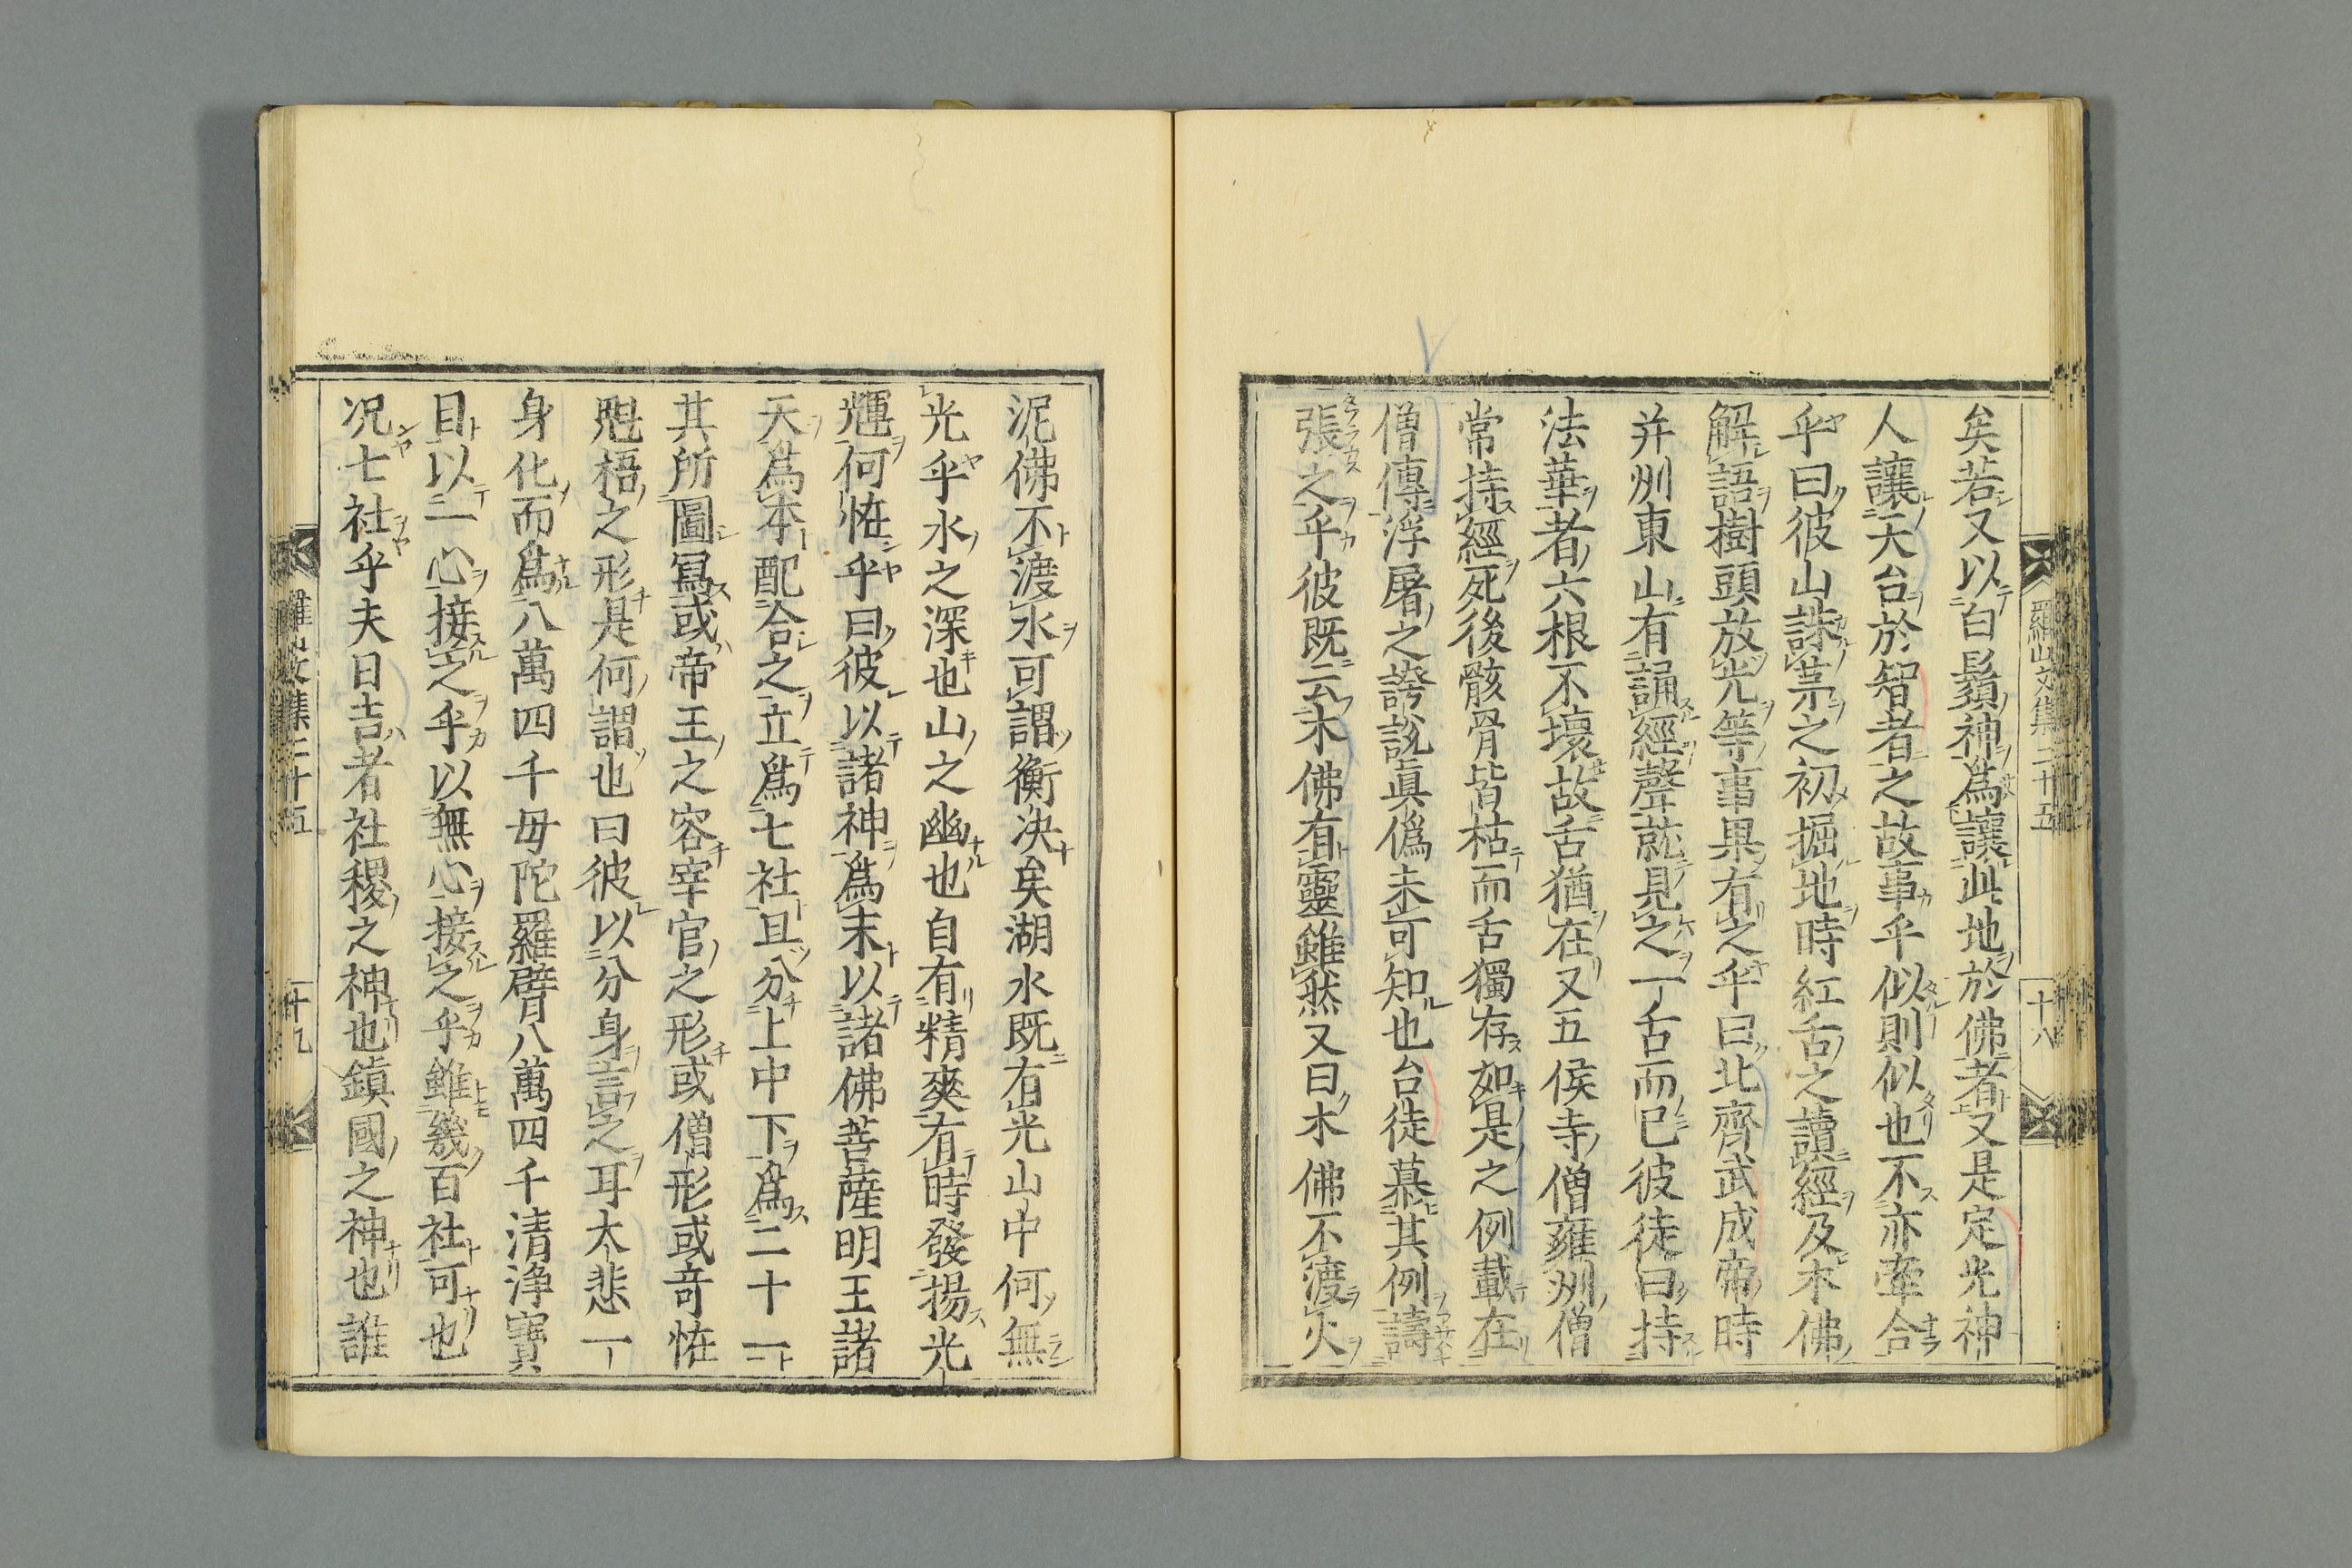 羅山文集二十五
十八
矣若又以白鬚神爲讓此地於佛者又是定光神
人讓天台於智者之故事乎似則似也不亦牽合
乎曰彼山誅茅之初掘地時紅舌之讀經及木佛
解語樹頭放光等事果有之乎曰北齊武成帝時
并州東山有誦經聲就見之一舌而已彼徒曰持
法華者六根不壞故舌猶在又五侯寺僧雍州僧
常持經死後骸骨皆枯而舌獨存如是之例載在
僧傳浮屠之誇說眞僞未可知也台徒慕其例譸
張之乎彼既云木佛有靈雖然又曰木佛不渡火
泥佛不渡水可謂衡決矣湖水既有光山中何無
光乎水之深也山之幽也自有精爽有時發揚光
輝何恠乎曰彼以諸神爲末以諸佛菩薩明王諸
天爲本配合之立爲七社且分上中下爲二十一
其所圖冩或帝王之容宰官之形或僧形或奇恠
魁梧之形是何謂也曰彼以分身言之耳大悲一
身化而爲八萬四千毋陀羅臂八萬四千清浄寳
目以一心接之乎以無心接之乎雖幾百社可也
况七社乎夫日吉者社稷之神也鎮國之神也誰
羅山文集二十五
十九